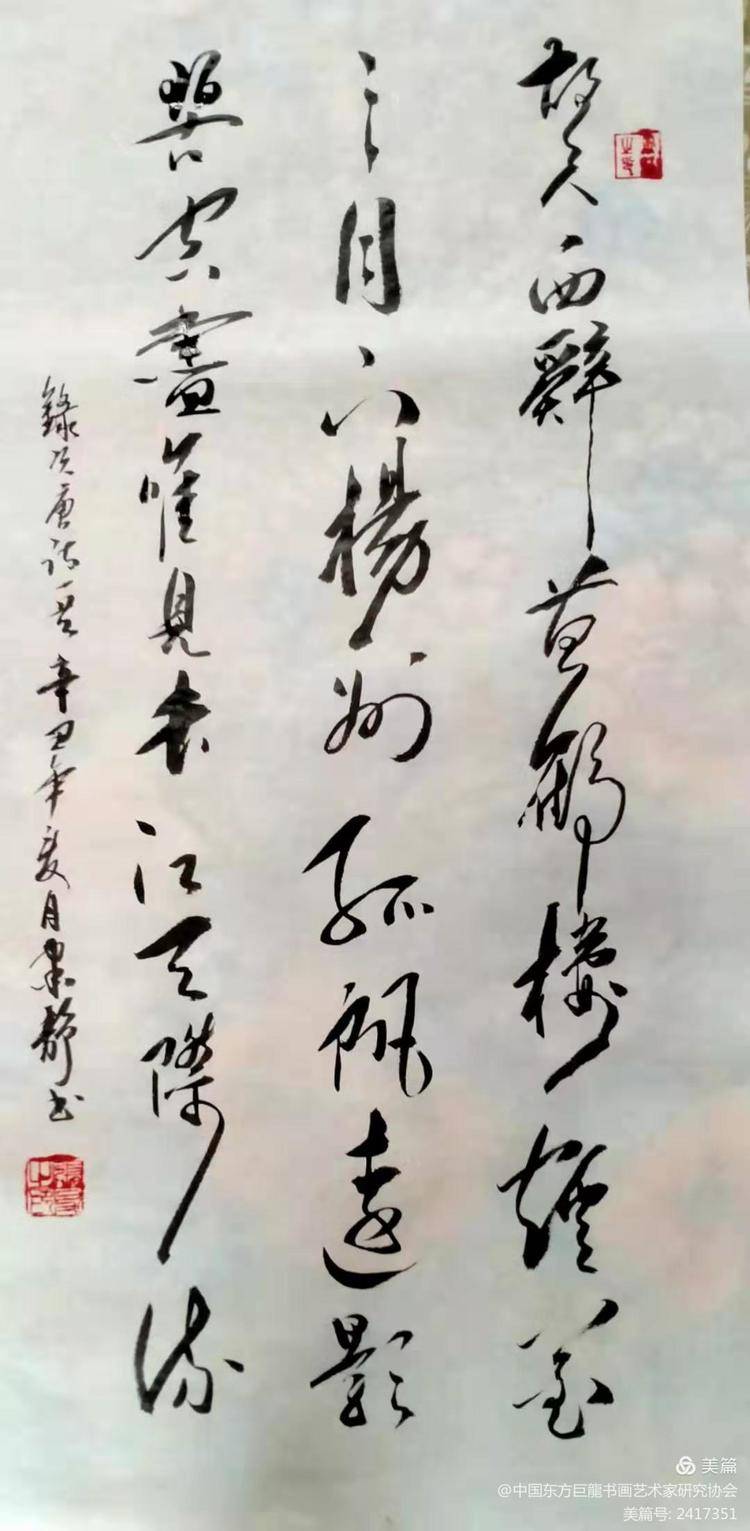 故人西辭黄鶴樓煙花
三月下楊州孤帆遠影
碧空盡唯見長江天際流
唐詩一首 辛丑年夏月 靜书
美篇
@中国东方巨龍书画艺术家研究协会
美篇号: 2417351